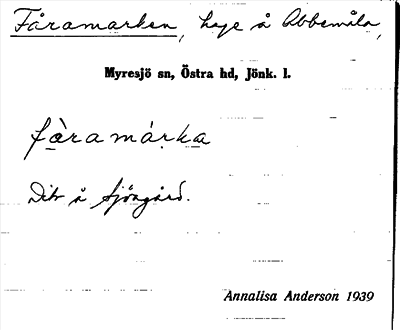 Fåramarken, hage å Abbemåla,
Myresjö sn, Östra hd, Jönk. l.
fàramárka
Dito å Sjögård.
Annalisa Anderson 1939